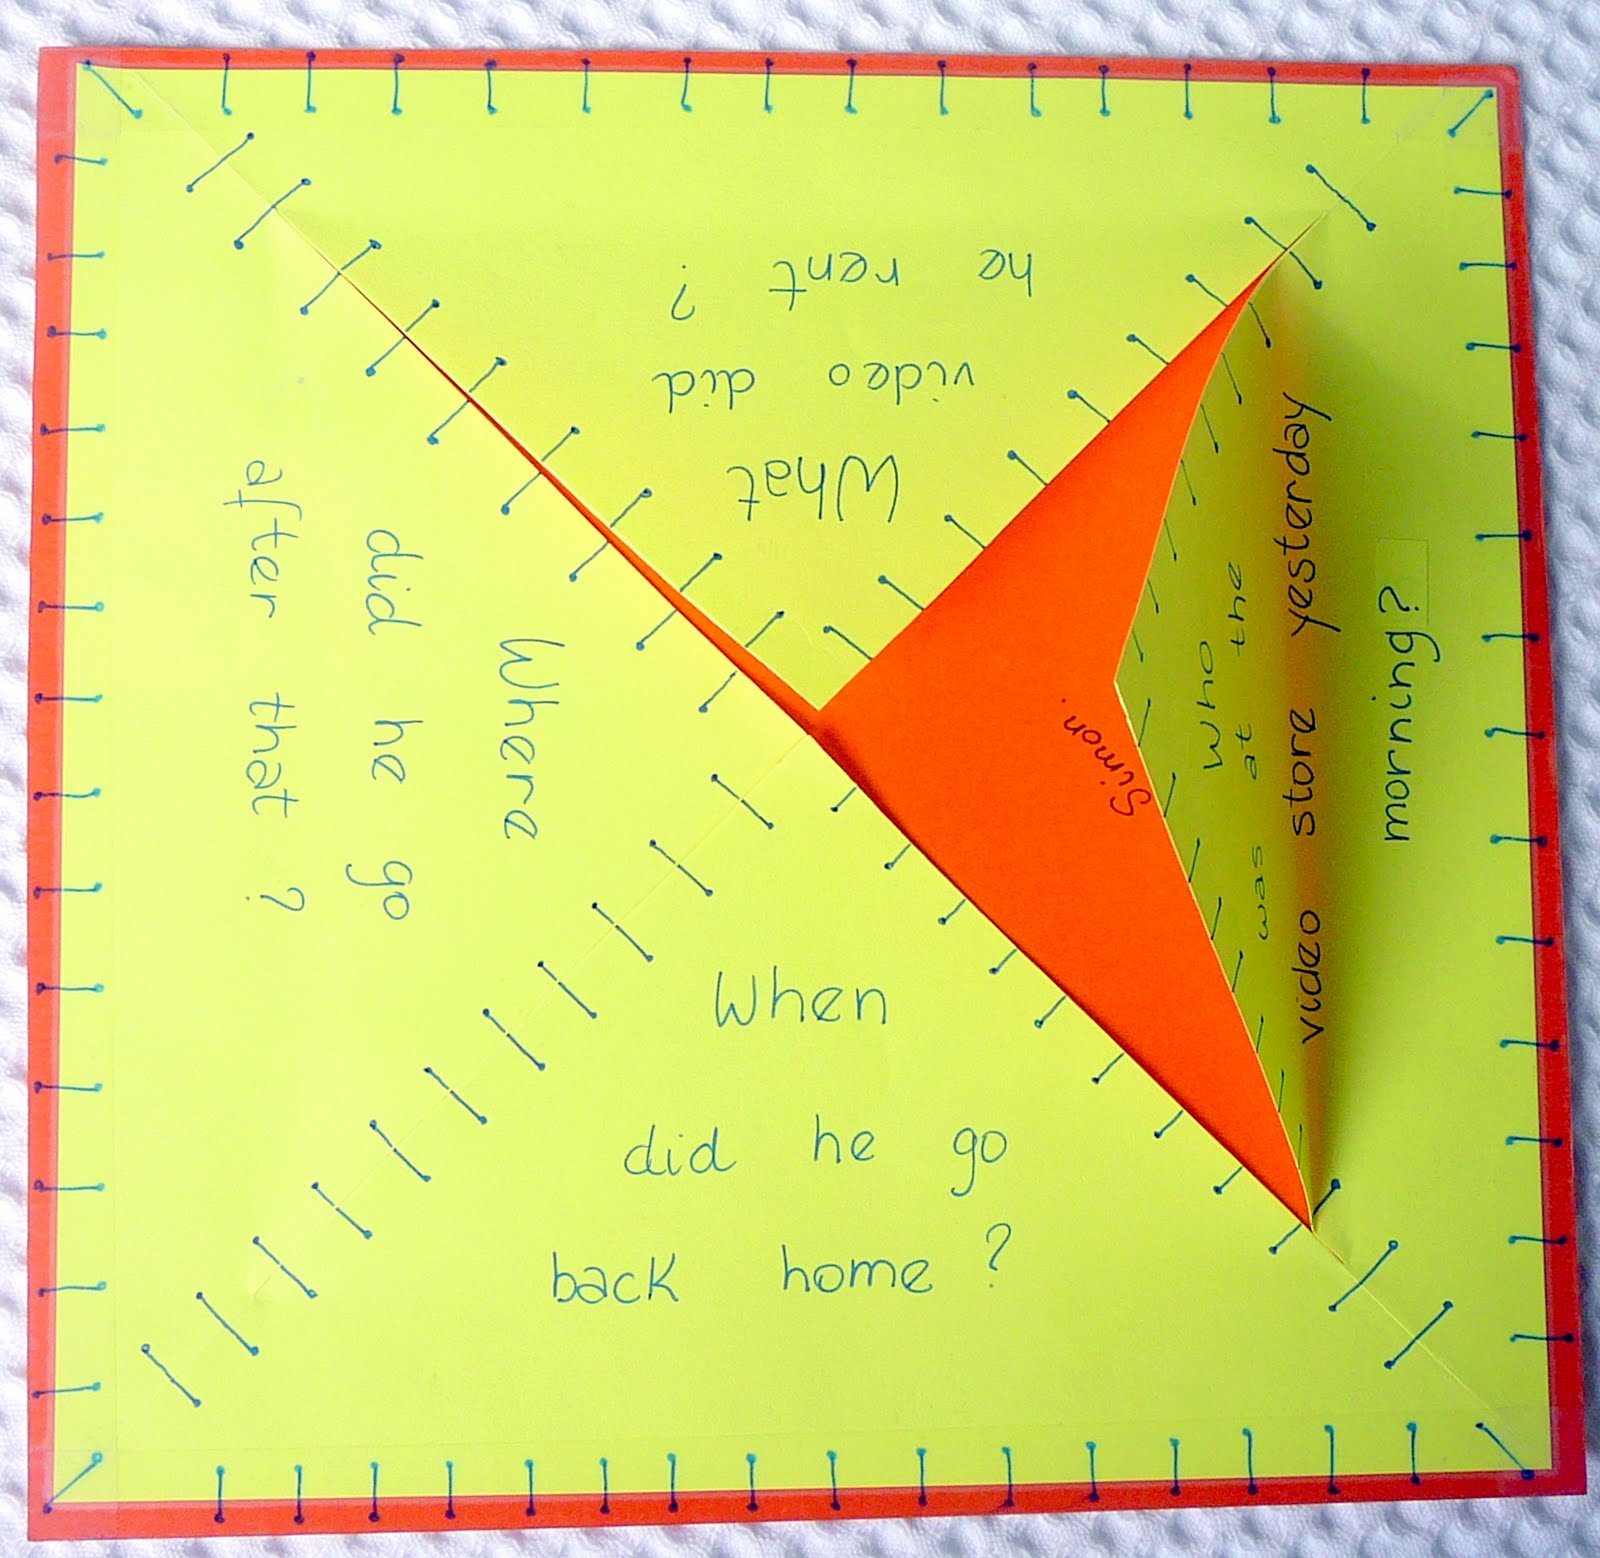 What
video did
he rent ?
Who
was at the
video store yesterday
morning?
Simon.
Where
did he go
after that ?
When
did he go
back home ?